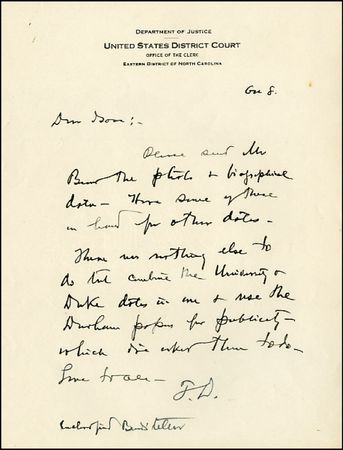 DEPARTMENT OF JUSTICE
UNITED STATES DISTRICT COURT
OFFICE OF THE CLERK
EASTERN DISTRICT OF NORTH CAROLINA
8.
Dear :-
Please send Mr
the photo & biographical
data – Have some of these
in hand for other dates –
There was nothing else to
do but combine the University &
Duke dates in one & use the
Durham papers for publicity –
which I've asked them to do –
Love to all –
J.D.